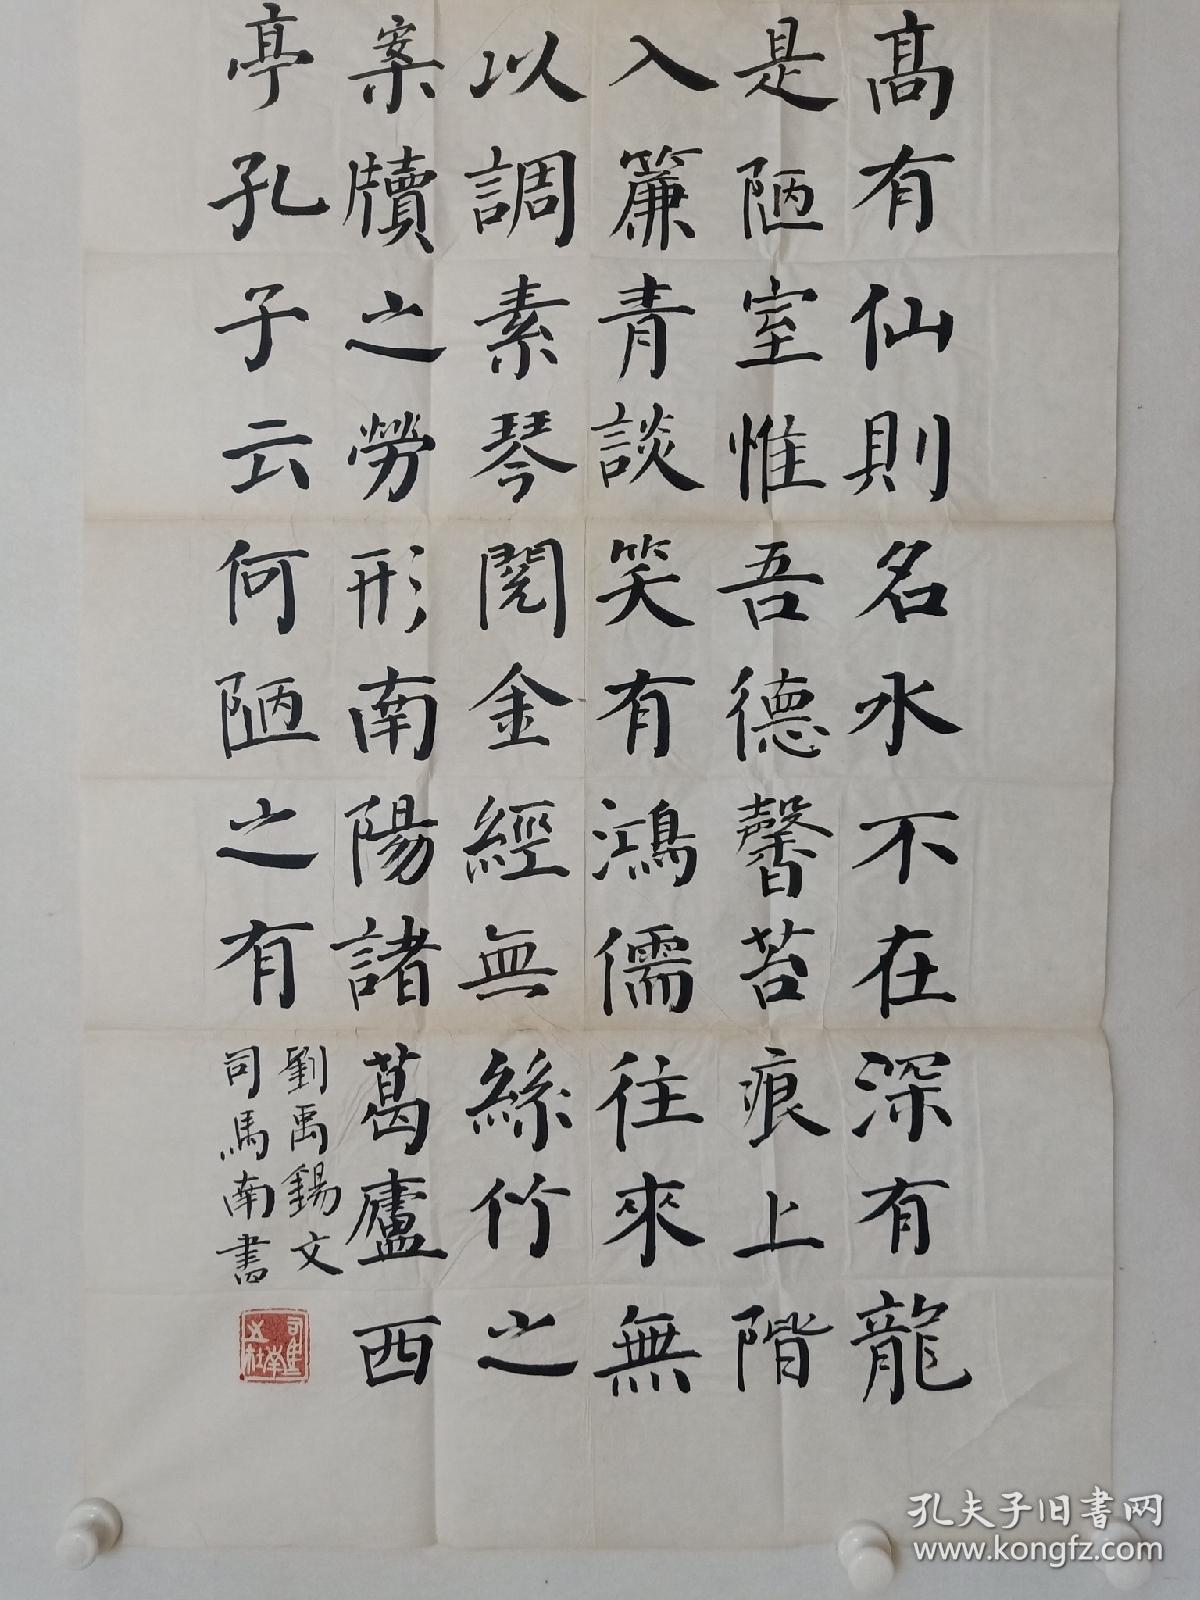 高有仙則名水不在深有龍
是陋室惟吾德馨苔痕上階
入簾青談笑有鴻儒往來無
以調素琴閱金經無絲竹之
案牘之勞形南陽諸葛廬西
亭孔子云何陋之有
劉禹錫文
司馬南書
孔夫子旧书网
www.kongfz.com